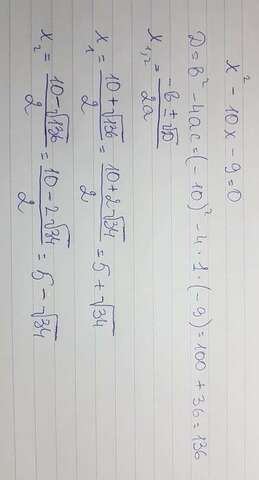 x² - 10x - 9 = 0
D = b² - 4ac = (-10)² - 4 · 1 · (-9) = 100 + 36 = 136
x₁,₂ = (-b ± √D)/2a
x₁ = (10 + √136)/2 = (10 + 2√34)/2 = 5 + √34
x₂ = (10 - √136)/2 = (10 - 2√34)/2 = 5 - √34